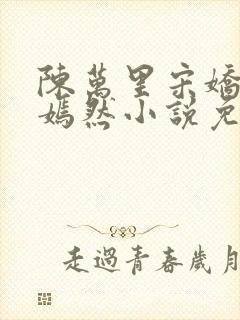 陳萬里宋嬌
嫣然小說免
走過青春歲月